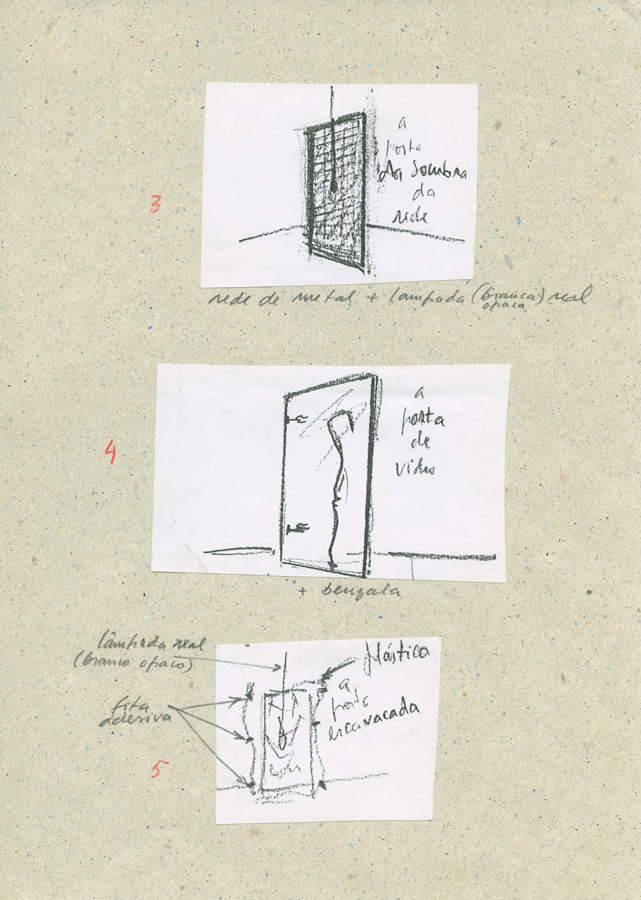 3
a
porta
da sombra
da
rede
rede de metal + lampada (branca) real
opaca
4
a
porta
de
vidro
+ bengala
lâmpada real
(branco opaco)
plástico
a
porta
escavacada
fita
adesiva
5